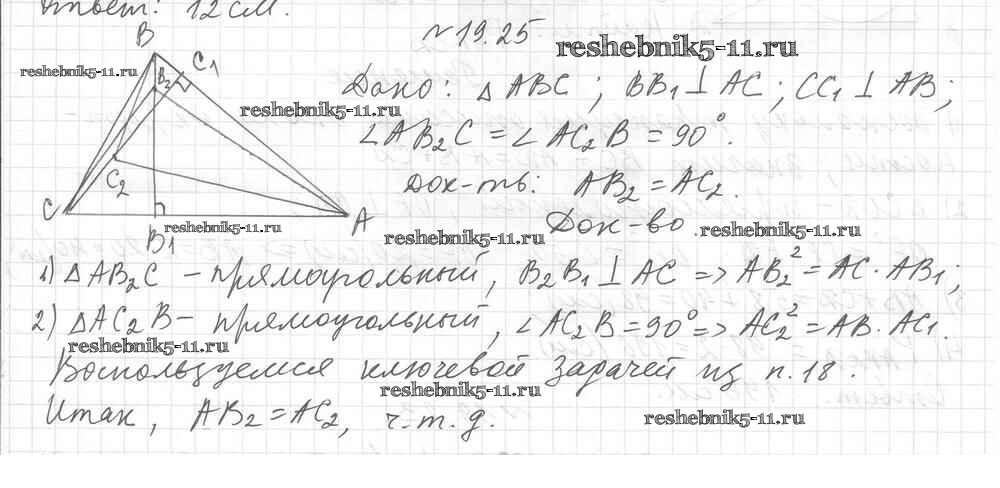 Ответ: 12 см.
№ 19.25
reshebnik5-11.ru
B
C1
B2
reshebnik5-11.ru
reshebnik5-11.ru
Дано: △ABC; BB1 ⊥ AC; CC1 ⊥ AB;
∠AB2C = ∠AC2B = 90°.
C2
Док-ть: AB2 = AC2.
C
A
B1
reshebnik5-11.ru
reshebnik5-11.ru
Док-во.
reshebnik5-11.ru
1) △AB2C – прямоугольный, B2B1 ⊥ AC => AB2² = AC · AB1;
2) △AC2B – прямоугольный, ∠AC2B = 90° => AC2² = AB · AC1.
reshebnik5-11.ru
Воспользуемся ключевой задачей из п. 18.
reshebnik5-11.ru
Итак, AB2 = AC2, ч.т.д.
reshebnik5-11.ru